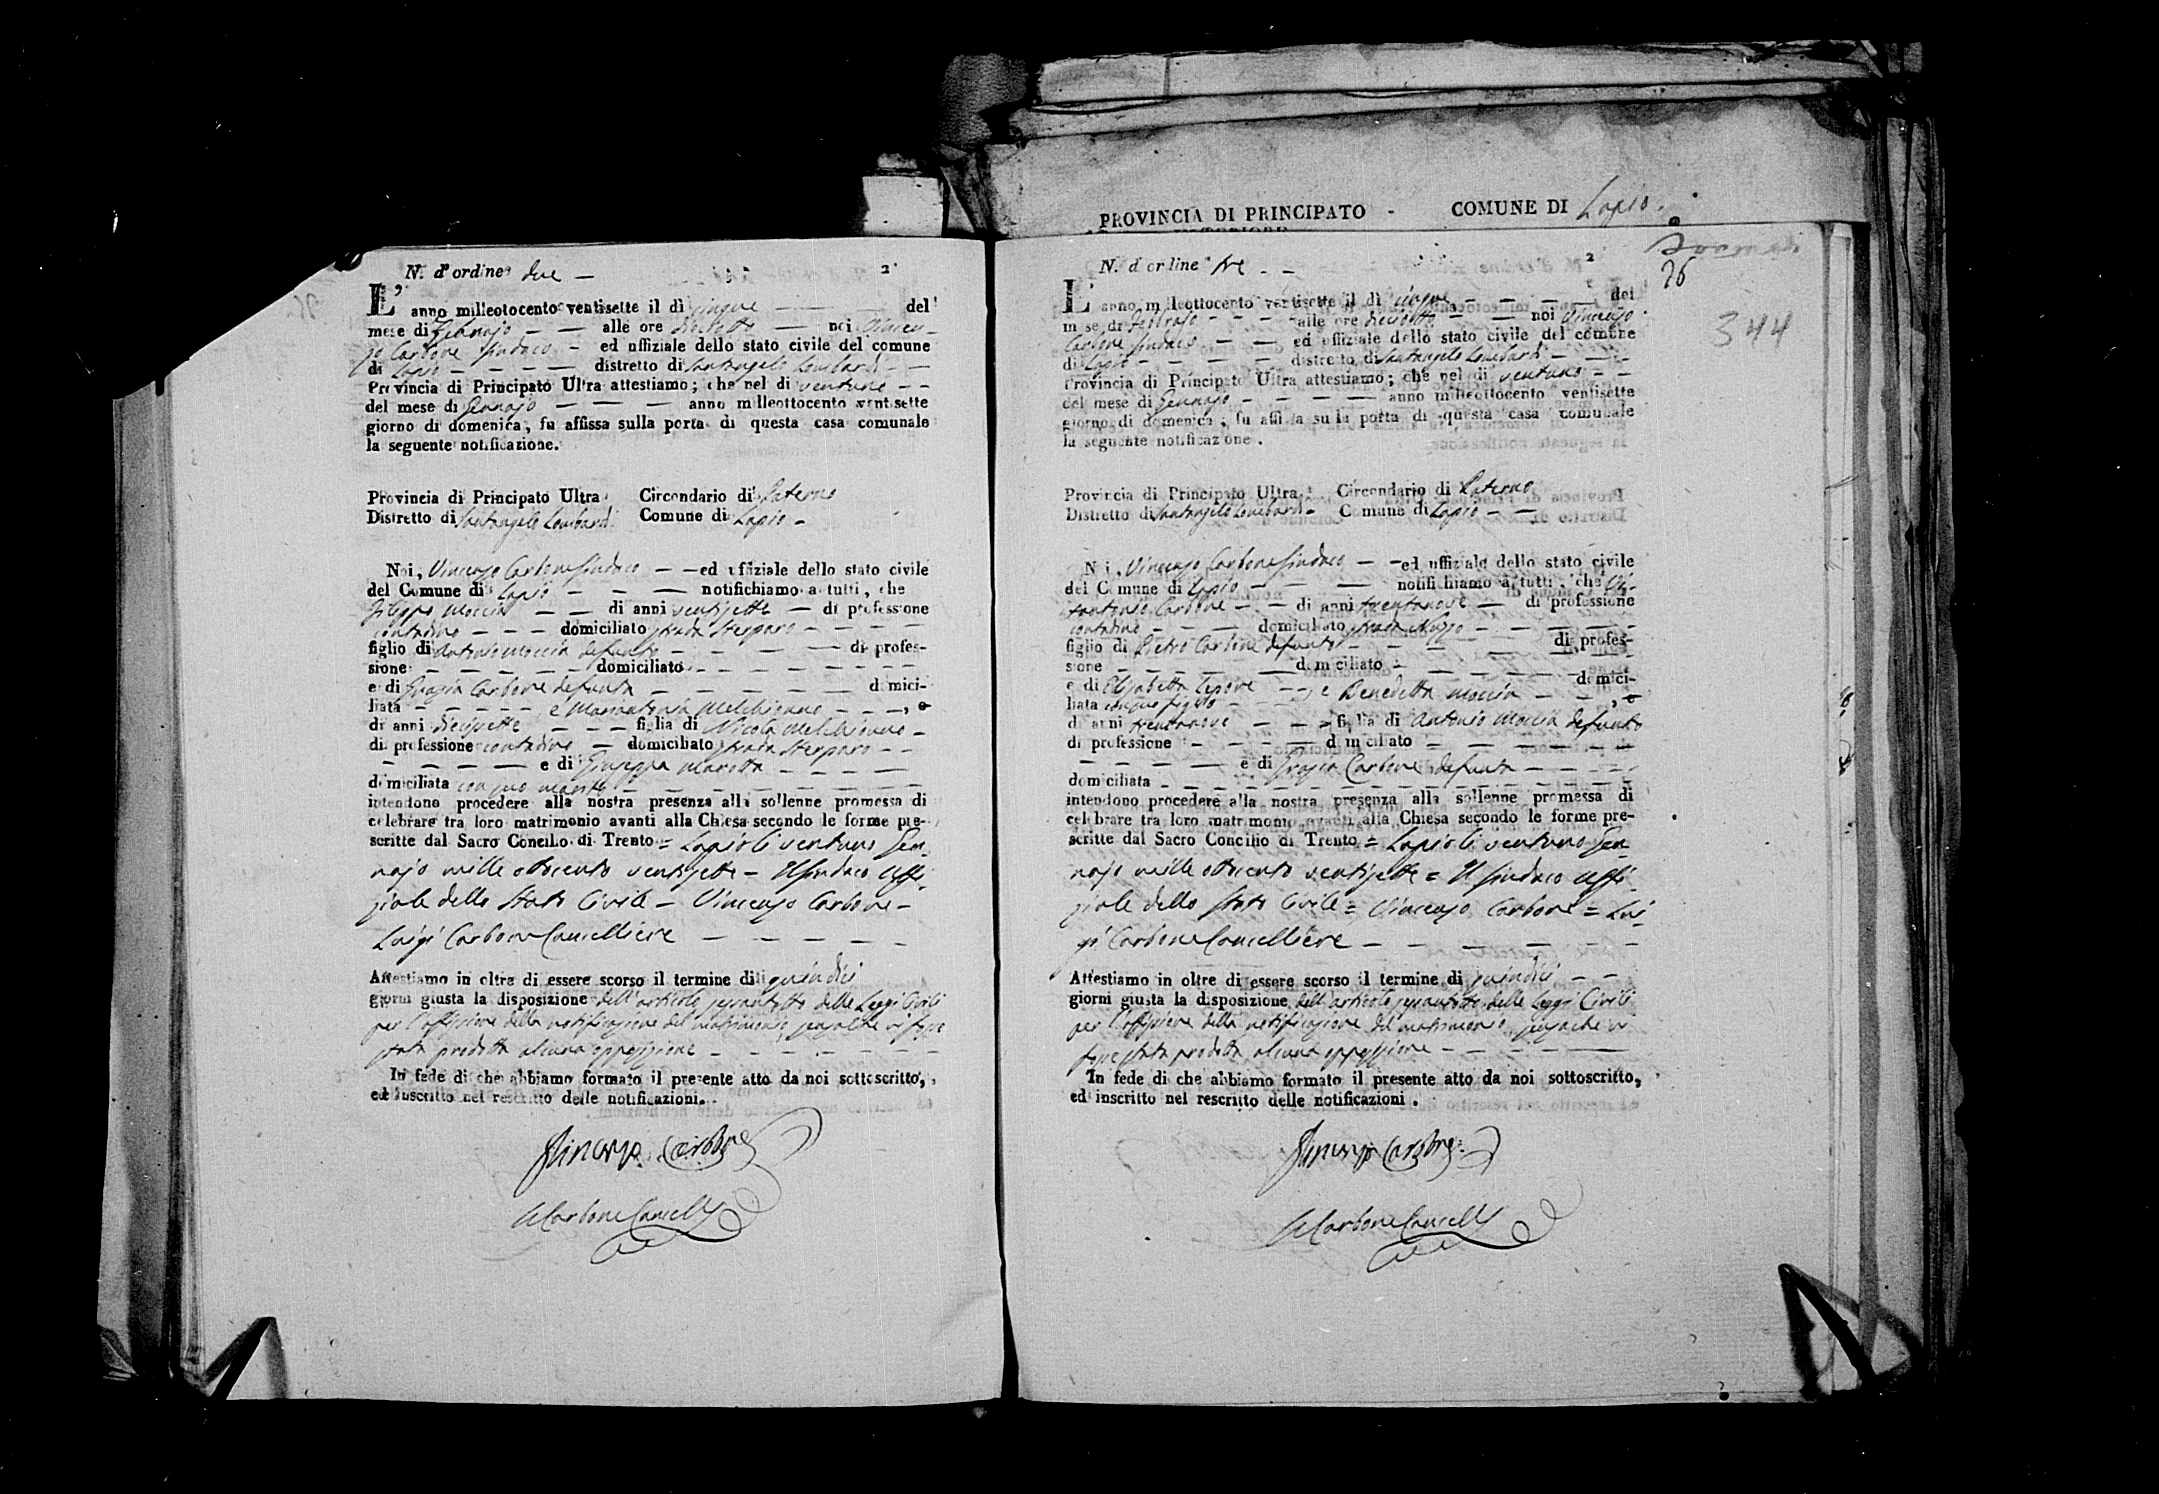 PROVINCIA DI PRINCIPATO - COMUNE DI Lapio.
N. d'ordine due — 2
L'anno milleottocento ventisette il dì cinque — — del
mese di Febrajo — — alle ore diciotto — noi Vincen-
zo Carbone Sindaco — ed uffiziale dello stato civile del comune
di Lapio — — — — distretto di Santangelo Lombardi — —
Provincia di Principato Ultra attestiamo; che nel di ventuno — —
del mese di Gennajo — — — anno milleottocento ventisette
giorno di domenica, fu affissa sulla porta di questa casa comunale
la seguente notificazione.
Provincia di Principato Ultra Circondario di Paterno
Distretto di Santangelo Lombardi Comune di Lapio —
Noi, Vincenzo Carbone Sindaco — — ed uffiziale dello stato civile
del Comune di Lapio — — — notifichiamo a tutti, che
Filippo Moccia — — di anni ventisette — di professione
contadino — — — domiciliato strada Sterparo — — — —
figlio di Antonio Moccia defunto — — — — di profes-
sione — — — — — domiciliato — — — — — —
e di Grazia Carbone defunta — — — — — domici-
liata — — — — e Mariantonia Melchionno — — —, e
di anni diecisette — — — figlia di Nicola Melchionno —
di professione contadino — domiciliato strada Sterparo — —
— — — — — e di Giuseppa Marotta — — — —
domiciliata con suo marito — — — — — — —
intendono procedere alla nostra presenza alla sollenne promessa di
celebrare tra loro matrimonio avanti alla Chiesa secondo le forme pre-
scritte dal Sacro Concilio di Trento = Lapio li ventuno Gen-
najo mille ottocento ventisette — Il Sindaco Uffi-
ziale dello Stato Civile — Vincenzo Carbone —
Luigi Carbone Cancelliere — — — — —
Attestiamo in oltre di essere scorso il termine di quindici
giorni giusta la disposizione dell'articolo sessantotto delle Leggi Civili
per l'affissione della notificazione del matrimonio, senza che vi fosse
stata prodotta alcuna opposizione — — — — — —
In fede di che abbiamo formato il presente atto da noi sottoscritto,
ed inscritto nel rescritto delle notificazioni.
Vincenzo Carbone
L Carbone Cancell
N. d'ordine tre — — 2
76
344
L'anno milleottocento ventisette il dì cinque — — — — del
mese di Febbrajo — — — — alle ore diciotto — — noi Vincenzo
Carbone Sindaco — — ed uffiziale dello stato civile del comune
di Lapio — — — — — distretto di Santangelo Lombardi — — —
Provincia di Principato Ultra attestiamo; che nel di ventuno — —
del mese di Gennajo — — — — anno milleottocento ventisette
giorno di domenica, fu affissa sulla porta di questa casa comunale
la seguente notificazione.
Provincia di Principato Ultra Circondario di Paterno
Distretto di Santangelo Lombardi — Comune di Lapio — —
Noi, Vincenzo Carbone Sindaco — — ed uffiziale dello stato civile
del Comune di Lapio — — — notifichiamo a tutti, che Vi-
tantonio Carbone — — di anni trentanove — di professione
contadino — — — domiciliato strada — — — — —
figlio di Pietro Carbone defunto — — — — — di profes-
sione — — — — — domiciliato — — — — — —
e di Elisabetta — — —, e Benedetta Moccia — — domici-
liata — — — —, e
di anni trentanove — — — figlia di Antonio Moccia defunto
di professione — — — — domiciliato — — — — —
— — — — — e di Grazia Carbone defunta — — — —
domiciliata — — — — — — — — — —
intendono procedere alla nostra presenza alla sollenne promessa di
celebrare tra loro matrimonio avanti alla Chiesa secondo le forme pre-
scritte dal Sacro Concilio di Trento = Lapio li ventuno Gen-
najo mille ottocento ventisette = Il Sindaco Uffi-
ziale dello Stato Civile = Vincenzo Carbone = Lui-
gi Carbone Cancelliere — — — — — —
Attestiamo in oltre di essere scorso il termine di quindici — —
giorni giusta la disposizione dell'articolo sessantotto delle Leggi Civili
per l'affissione della notificazione del matrimonio, senza che vi
fosse stata prodotta alcuna opposizione — — — — —
In fede di che abbiamo formato il presente atto da noi sottoscritto,
ed inscritto nel rescritto delle notificazioni.
Vincenzo Carbone
L Carbone Cancell